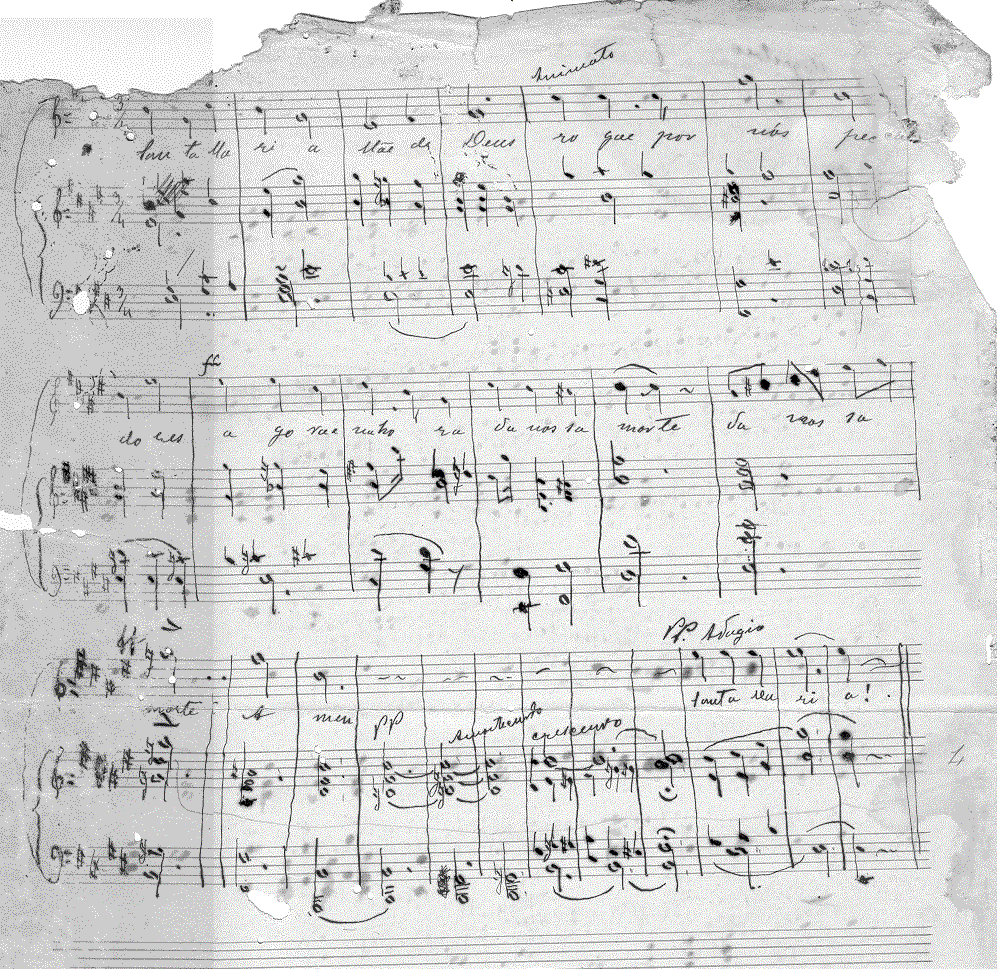 Animato
San ta Ma ri a Mãe de Deus ro gae por nós pec ca
ff
do res a go rae naho ra da nos sa morte da nos sa
PP. Adagio
morte A men Santa Ma ri a!
PP crescendo